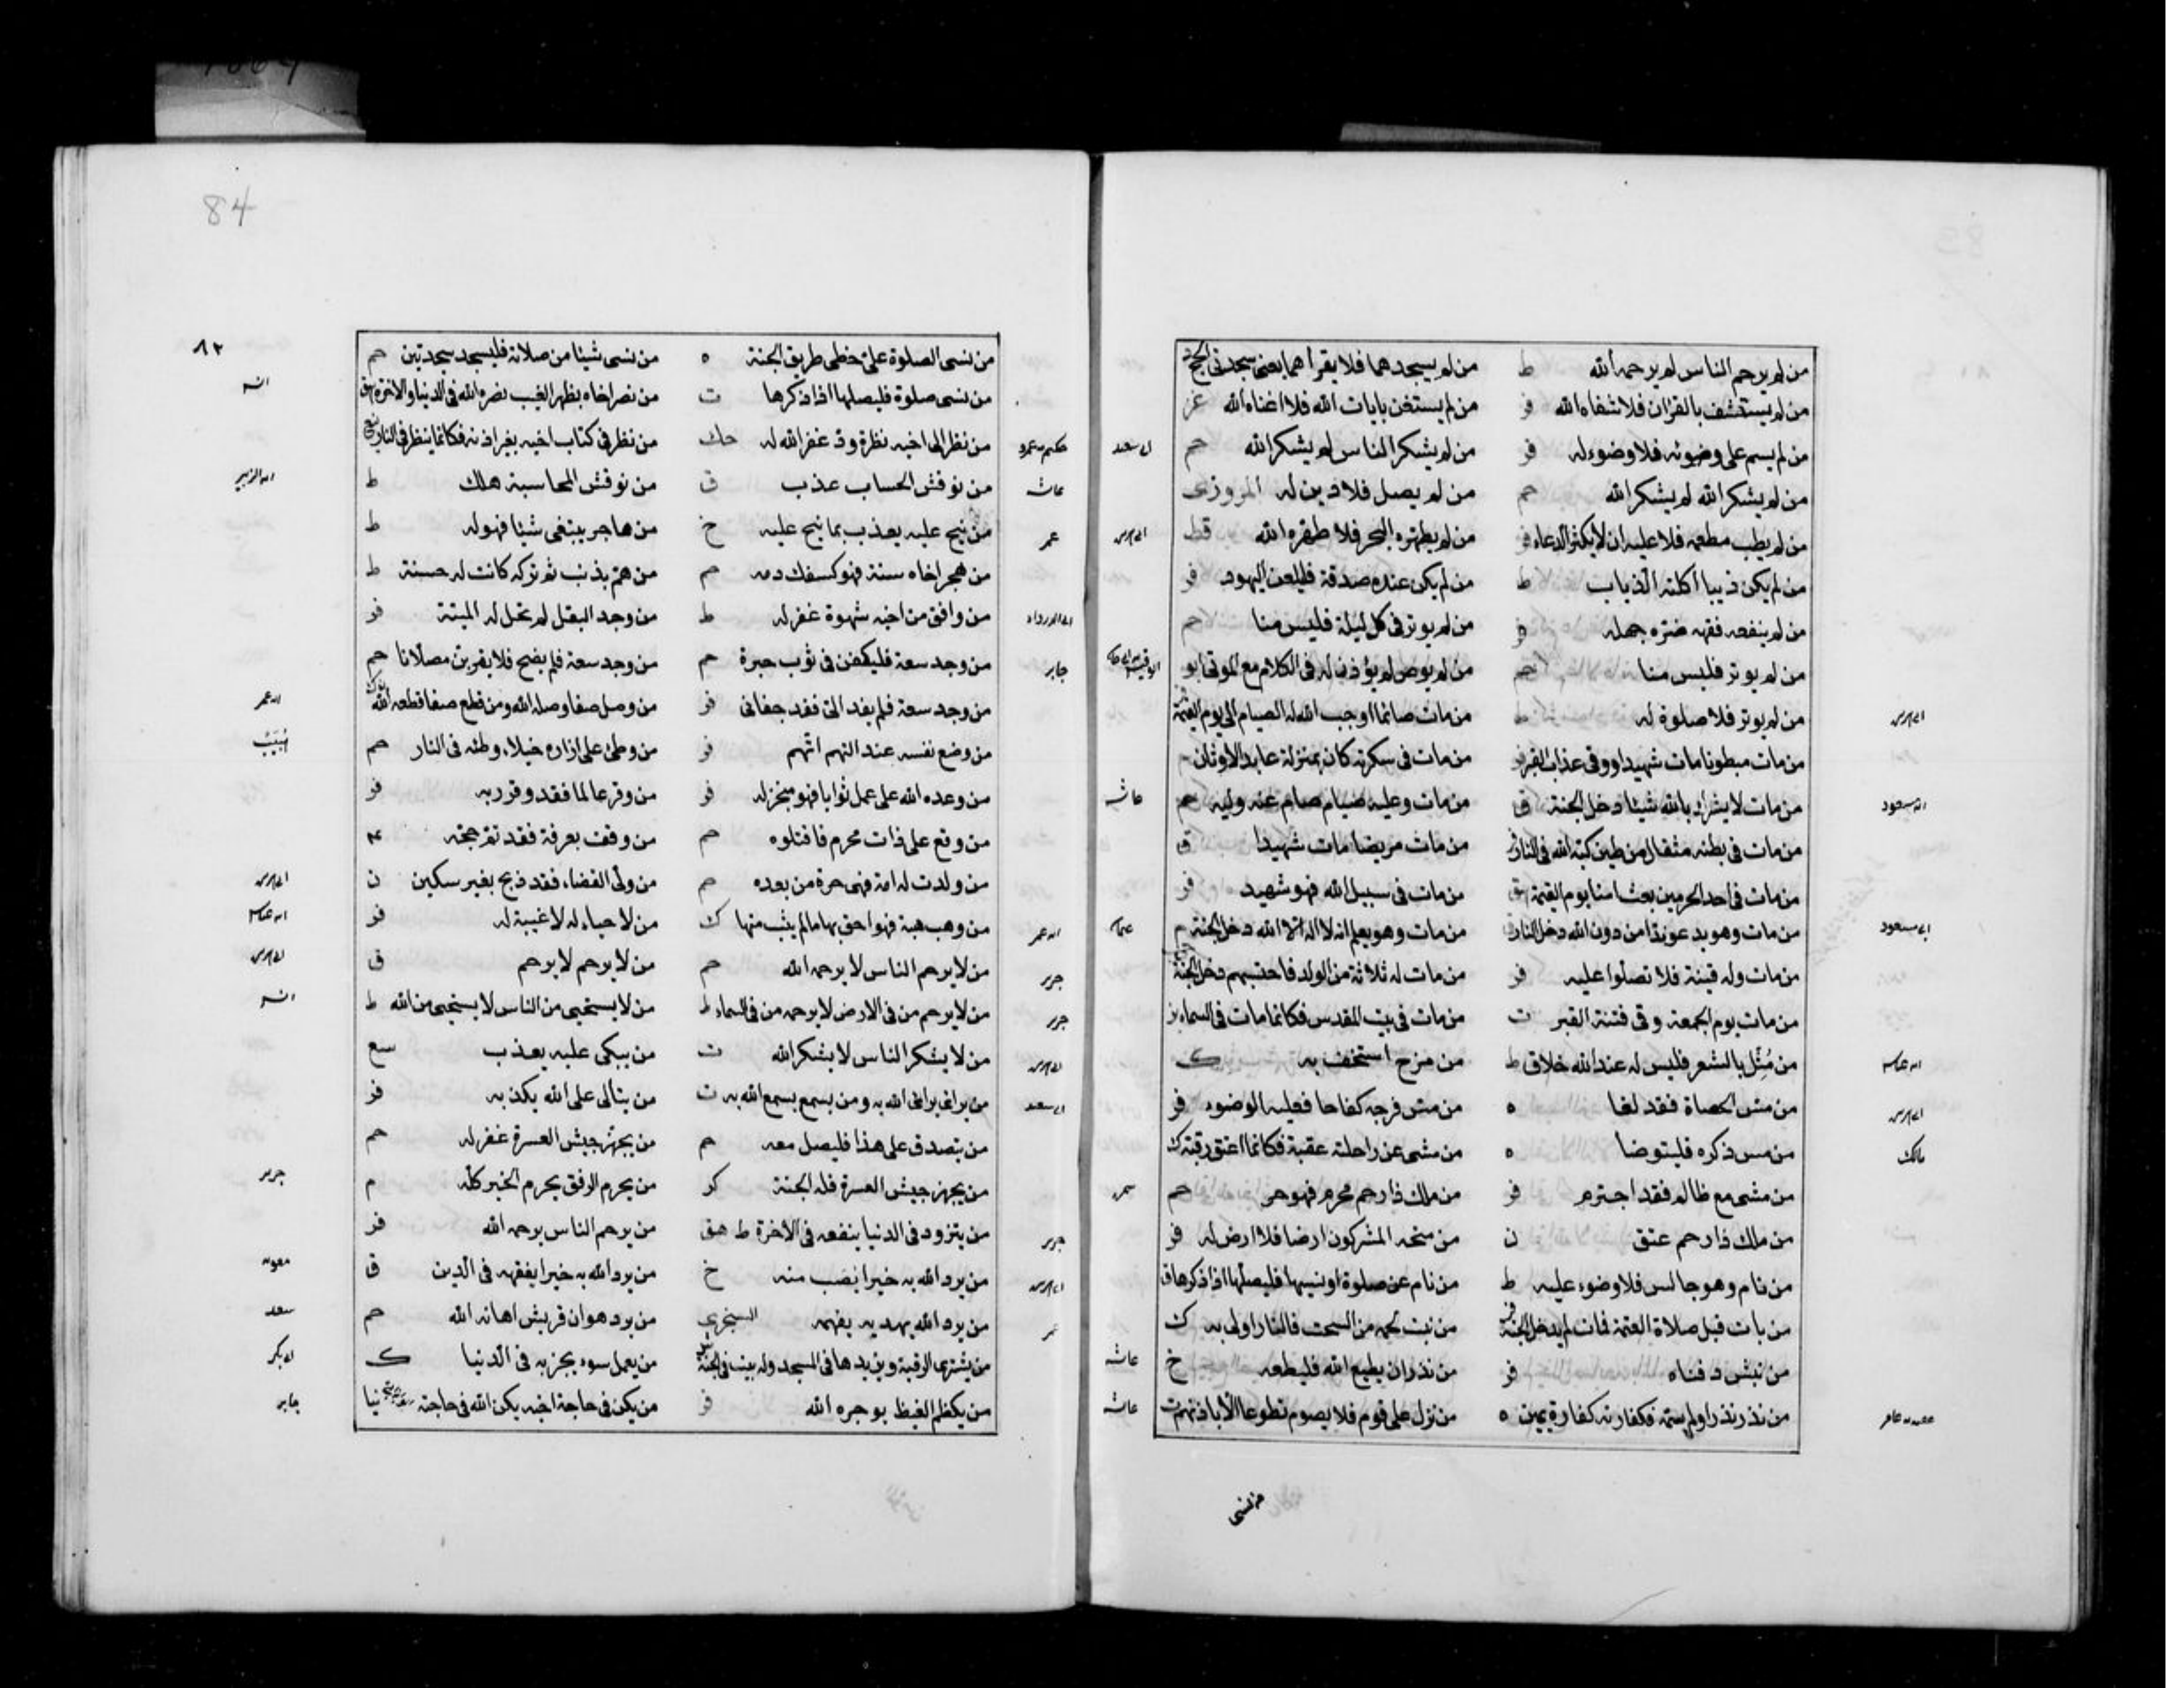 من لم يرحم الناس لم يرحمه الله ط من لم يسجدهما فلا يقرأهما يعنى سجدتى الحج
من لم يستشف بالقران فلا شفاه الله فر من لم يستغن بايات الله فلا اغناه الله
من لم يسم على وضوئه فلا وضوء له فر من لم يشكر الناس لم يشكر الله حم
من لم يشكر الله لم يشكر الله حم من لم يصل فلا دين له المروزى
من لم يطب مطعمه فلا عليه ان لا يكثر الدعاء فر من لم يطهره البحر فلا طهره الله قط
من لم يكن ذيبا اكلته الذياب ط من لم يكن عنده صدقة فليلعن اليهود فر
من لم ينفعه فقهه ضره جهله فر من لم يوتر فى كل ليلة فليس منا حم
من لم يوتر فليس منا حم من لم يوص لم يؤذن له فى الكلام مع الموتى
من لم يوتر فلا صلوة له ط من مات صائما اوجب الله له الصيام الى يوم القيمة
من مات مبطونا مات شهيدا ووقى عذاب القبر من مات فى سكرته كان بمنزلة عابد الاوثان
من مات لا يشرك بالله شيئا دخل الجنة ق من مات وعليه صيام صام عنه وليه حم عائشه
من مات فى بطنه مثقال من طين كبه الله فى النار من مات مريضا مات شهيدا ق
من مات فى احد الحرمين بعث امنا يوم القيمة من مات فى سبيل الله فهو شهيد فر
من مات وهو يدعو ندا من دون الله دخل النار من مات وهو يعلم انه لا اله الا الله دخل الجنة م
من مات وله قينة فلا تصلوا عليه فر من مات له ثلاثة من الولد فاحتسبهم دخل الجنة
من مات يوم الجمعة وقى فتنة القبر ت من مات فى بيت المقدس فكانما مات فى السماء
من مثل بالشعر فليس له عند الله خلاق ط من مزح استخف به ك
من مس الحصاة فقد لغا ه من مس فرجه كفاحا فعليه الوضوء فر
من مس ذكره فليتوضا ه من مشى عن راحلته عقبة فكانما اعتق رقبة ك
من مشى مع ظالم فقد اجترم فر من ملك ذا رحم محرم فهو حر حم
من ملك ذا رحم عتق ن من منحه المشركون ارضا فلا ارض له فر
من نام وهو جالس فلا وضوء عليه ط من نام عن صلوة او نسيها فليصلها اذا ذكرها ق
من بات قبل صلاة العتمة فمات لم يدخل الجنة من نبت لحمه من السحت فالنار اولى به ك
من نبش دفناه فر من نذر ان يطيع الله فليطعه خ عائشه
من نذر نذرا ولم يسمه فكفارته كفارة يمين ه من نزل على قوم فلا يصوم تطوعا الا باذنهم ت عائشه
من نسى
84
٨٢
من نسى الصلوة على خطى طريق الجنة ه من نسى شيئا من صلاته فليسجد سجدتين حم
من نسى صلوة فليصلها اذا ذكرها ت من نصر اخاه بظهر الغيب نصره الله فى الدنيا والاخرة هق
من نظر الى اخيه نظرة ود غفر الله له حك من نظر فى كتاب اخيه بغير اذنه فكانما ينظر فى النار
من نوقش الحساب عذب ق من نوقش المحاسبة هلك ط
عمر من نيح عليه يعذب بما نيح عليه خ من هاجر يبتغى شيئا فهو له ط
من هجر اخاه سنة فهو كسفك دمه حم من هم بذنب ثم تركه كانت له حسنة ط
من وافق من اخيه شهوة غفر له ط من وجد البقل لم تحل له الميتة فر
جابر من وجد سعة فليكفن فى ثوب حبرة حم من وجد سعة فلم يضح فلا يقربن مصلانا حم
من وجد سعة فلم يفد الى فقد جفانى فر من وصل صفا وصله الله ومن قطع صفا قطعه الله
من وضع نفسه عند التهم اتهم فر من وطئ على ازاره خيلاء وطئه فى النار حم
من وعده الله على عمل ثوابا فهو منجز له فر من وقر عالما فقد وقر ربه فر
من وقع على ذات محرم فاقتلوه حم من وقف بعرفة فقد تم حجه
من ولدت له امة فهى حرة من بعده حم من ولى القضاء فقد ذبح بغير سكين ن
من وهب هبة فهو احق بها ما لم يثب منها ك من لا حياء له لا غيبة له فر
جرير من لا يرحم الناس لا يرحمه الله حم من لا يرحم لا يرحم ق
جرير من لا يرحم من فى الارض لا يرحمه من فى السماء ط من لا يستحيى من الناس لا يستحيى من الله ط
من لا يشكر الناس لا يشكر الله ت من يبكى عليه يعذب سع
من يرائى يرائى الله به ومن يسمع يسمع الله به ت من يتالى على الله يكذبه فر
من يتصدق على هذا فليصل معه حم من يجهز جيش العسرة غفر له حم
من يجهز جيش العسرة فله الجنة كر من يحرم الرفق يحرم الخير كله م جرير
جرير من يتزود فى الدنيا ينفعه فى الاخرة ط هق من يرحم الناس يرحمه الله فر
من يرد الله به خيرا يصب منه خ من يرد الله به خيرا يفقهه فى الدين ق
من يرد الله يهديه يفهمه السجزى من يرد هوان قريش اهانه الله حم سعد
من يشترى الرقبة ويزيدها فى المسجد وله بيت فى الجنة من يعمل سوء يجز به فى الدنيا ك
من يكظم الغيظ يوجره الله فر من يكن فى حاجة اخيه يكن الله فى حاجته جابر